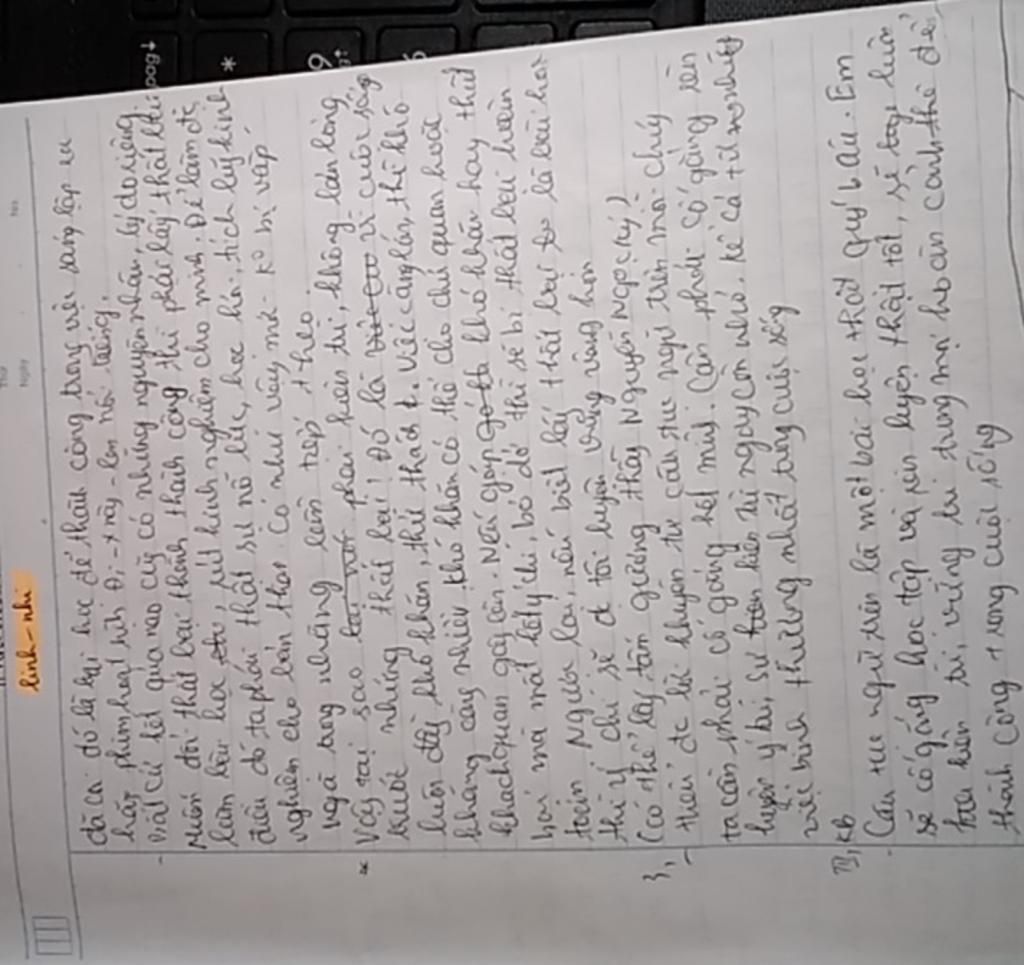 linh - nhi
đã có đó là bài học để thành công trong việc sáng lập ra
hấp phim hoạt hình Đi-x nây - lon nổi tiếng.
- Bất cứ kết quả nào cũg có những nguyên nhân, lý do riêng.
Muốn đổi thất bại thành thành công thì phải lấy thất bại
làm bài học, rút kinh nghiệm cho mình. Để làm đc
điều đó ta phải thật sự nỗ lực, học hỏi, tích lũy kinh
nghiệm cho bản thân. Có như vậy mà k bị vấp
ngã trong những lần tiếp theo.
* Vậy tại sao phải kiên trì, không nản lòng
trước những thất bại! Đó là vì cuộc sống
luôn đầy khó khăn, thử thách. Việc càng lớn, thì khó
khăng càng nhiều. Khó khăn có thể cho chủ quan hoặc
khách quan gây lên. Nếu gặp khó khăn hay thất
bại mà mất hết ý chí, bỏ dở thì sẽ bị thất bại hoàn
toàn. Ngược lại, nếu biết lấy thất bại là bài học
thì ý chí sẽ đc tôi luyện vững vàng hơn
Có thể lấy tấm gương thầy Nguyễn Ngọc Ký)
3, - Thái đc lời khuyên từ câu tục ngữ trên mỗi chúng
ta cần phải cố gắng hết mình. Cần phải cố gắng rèn
luyện ý trí, sự kiên trì ngay còn nhỏ, kể cả từ những
việc bình thường nhất trong cuộc sống
III, KB
- Câu tục ngữ trên là một bài học thật quý báu. Em
sẽ cố gắng học tập và rèn luyện thật tốt, sẽ luôn
kiên trì, vững trí trong mọi hoàn cảnh thể để
thành công trong cuộc sống